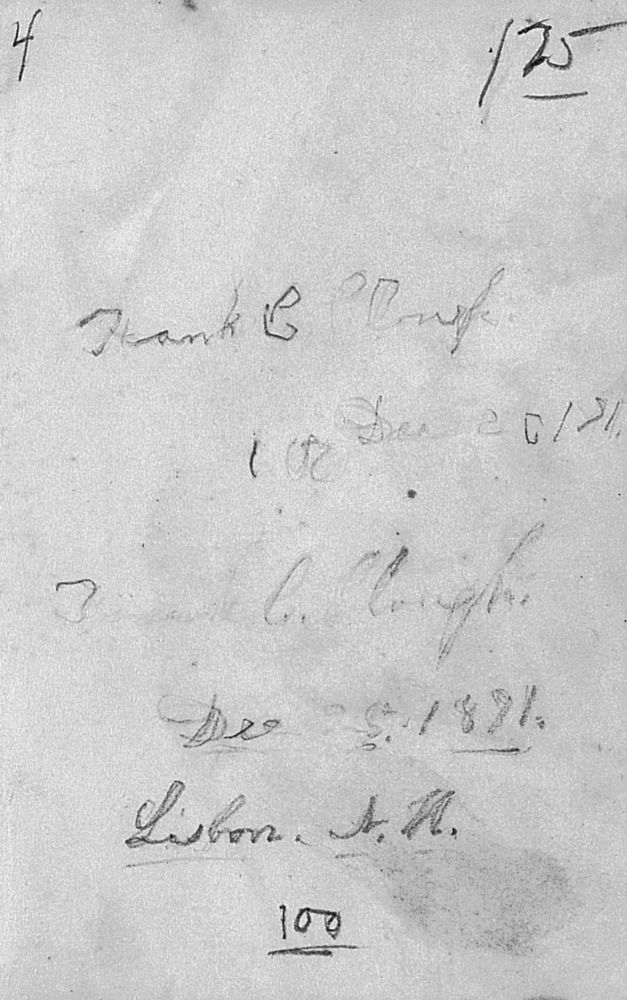 4 125
Frank C Clough.
Dec 25 1881.
1
Frank C. Clough.
Dec 25. 1881.
Lisbon. N. H.
100